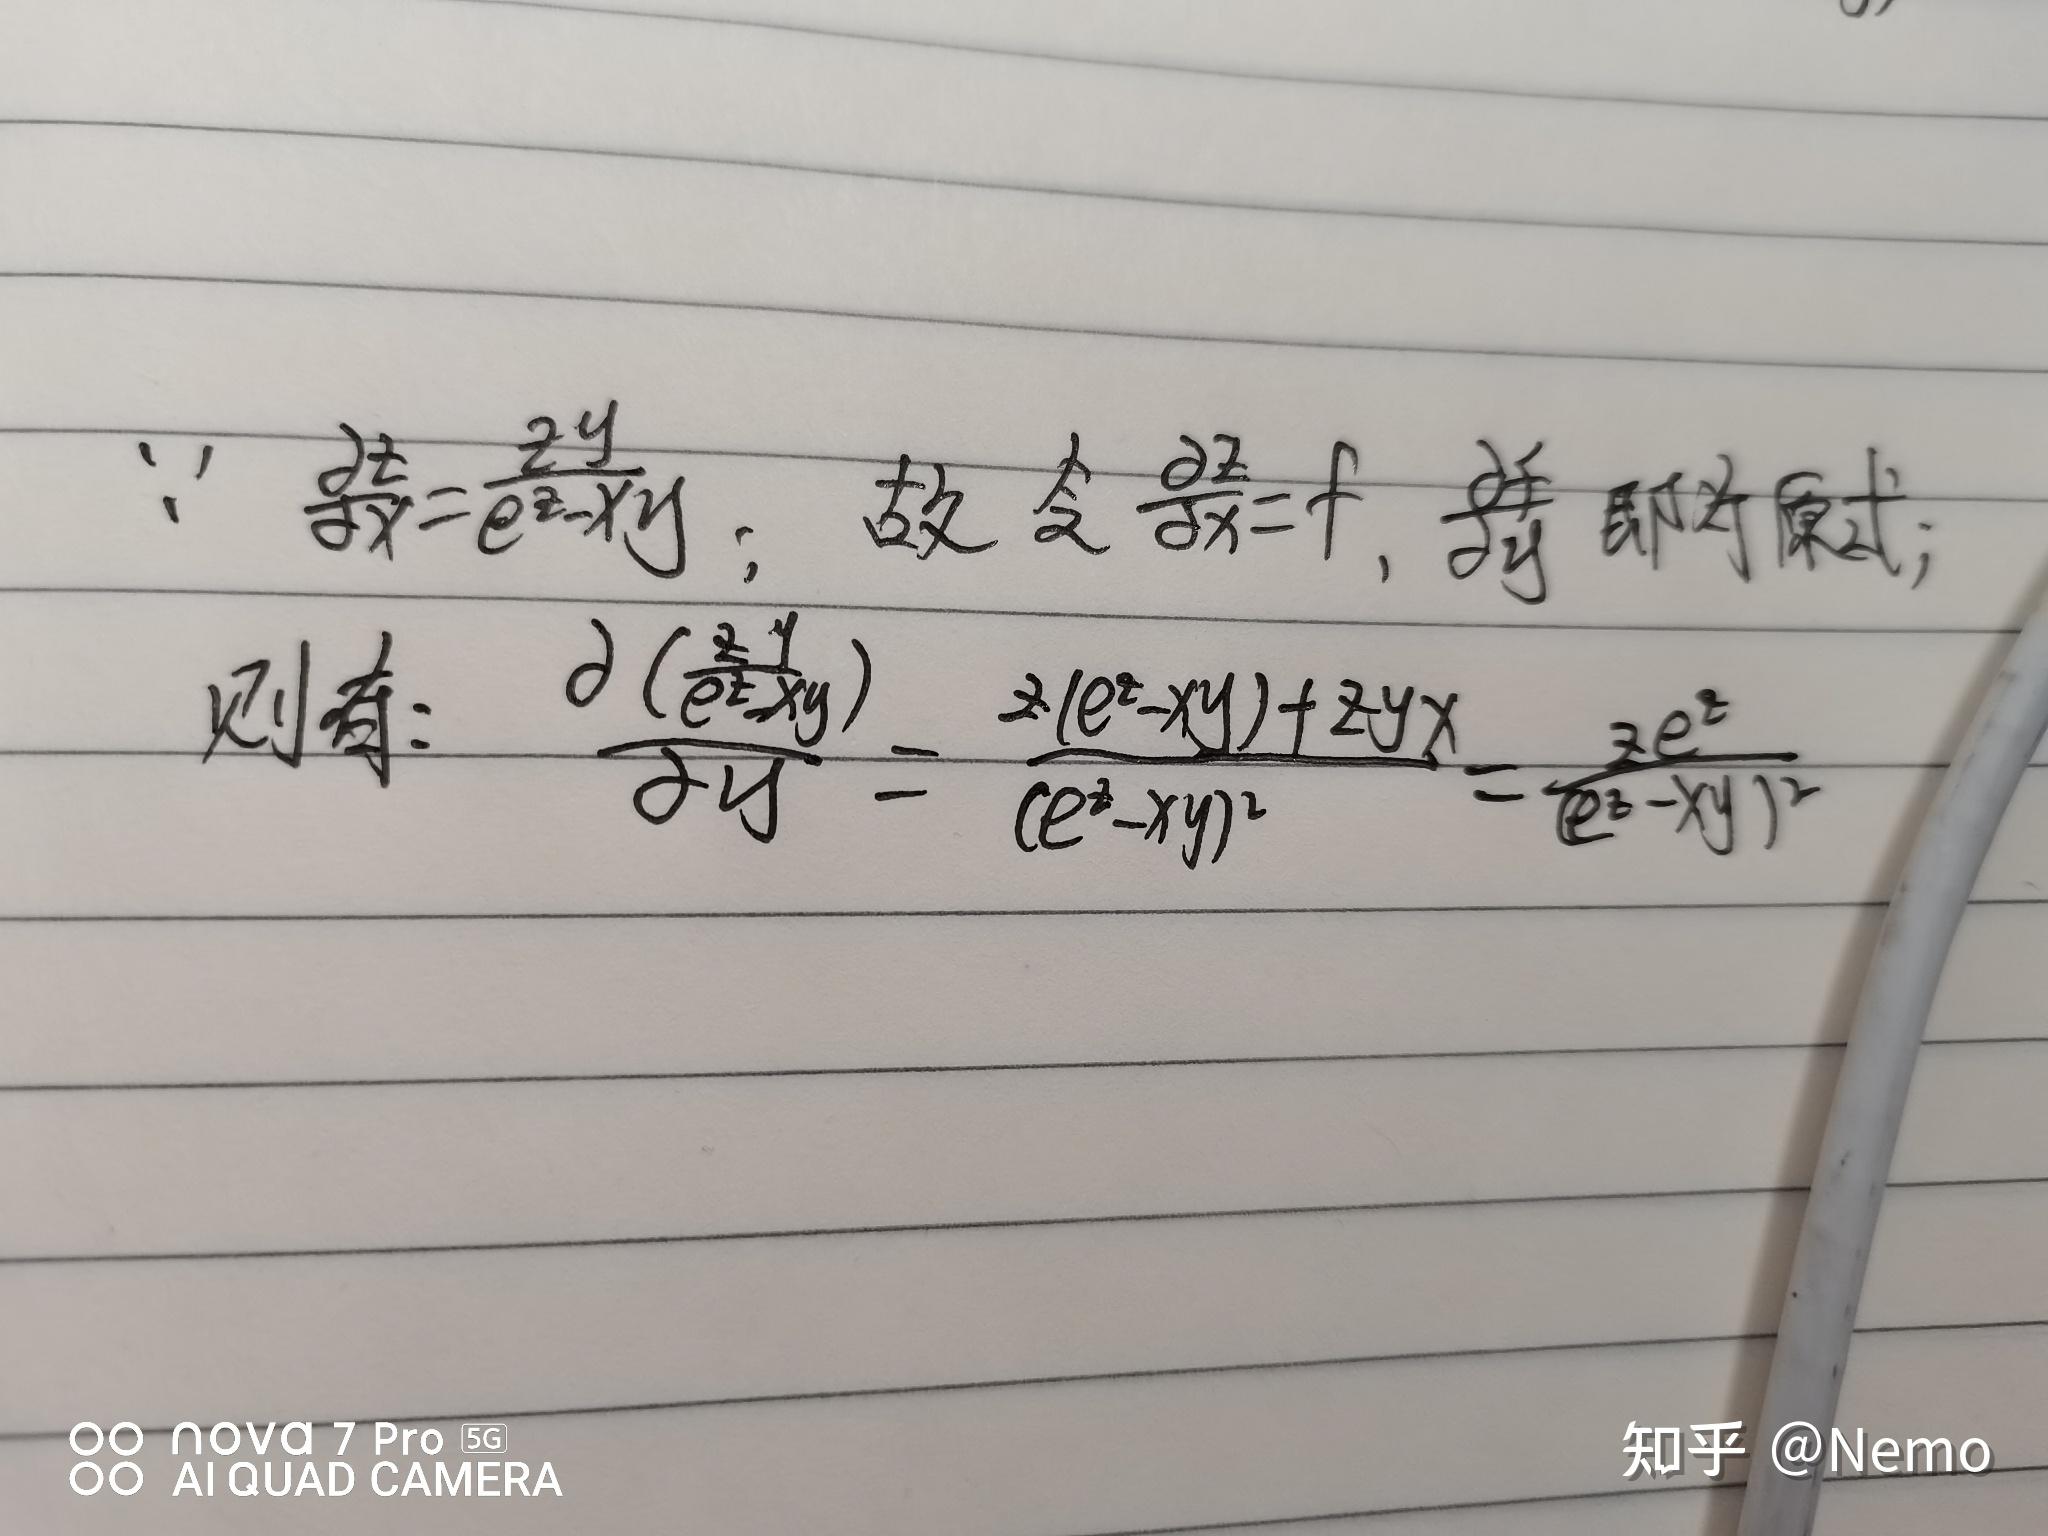 ∵ ∂z/∂x = zy/(e^z-xy); 故令 ∂z/∂x = f, ∂f/∂y 即为原式;
则有: ∂(zy/(e^z-xy))/∂y = (z(e^z-xy)+zyx)/(e^z-xy)² = ze^z/(e^z-xy)²
nova 7 Pro 5G
AI QUAD CAMERA
知乎 @Nemo